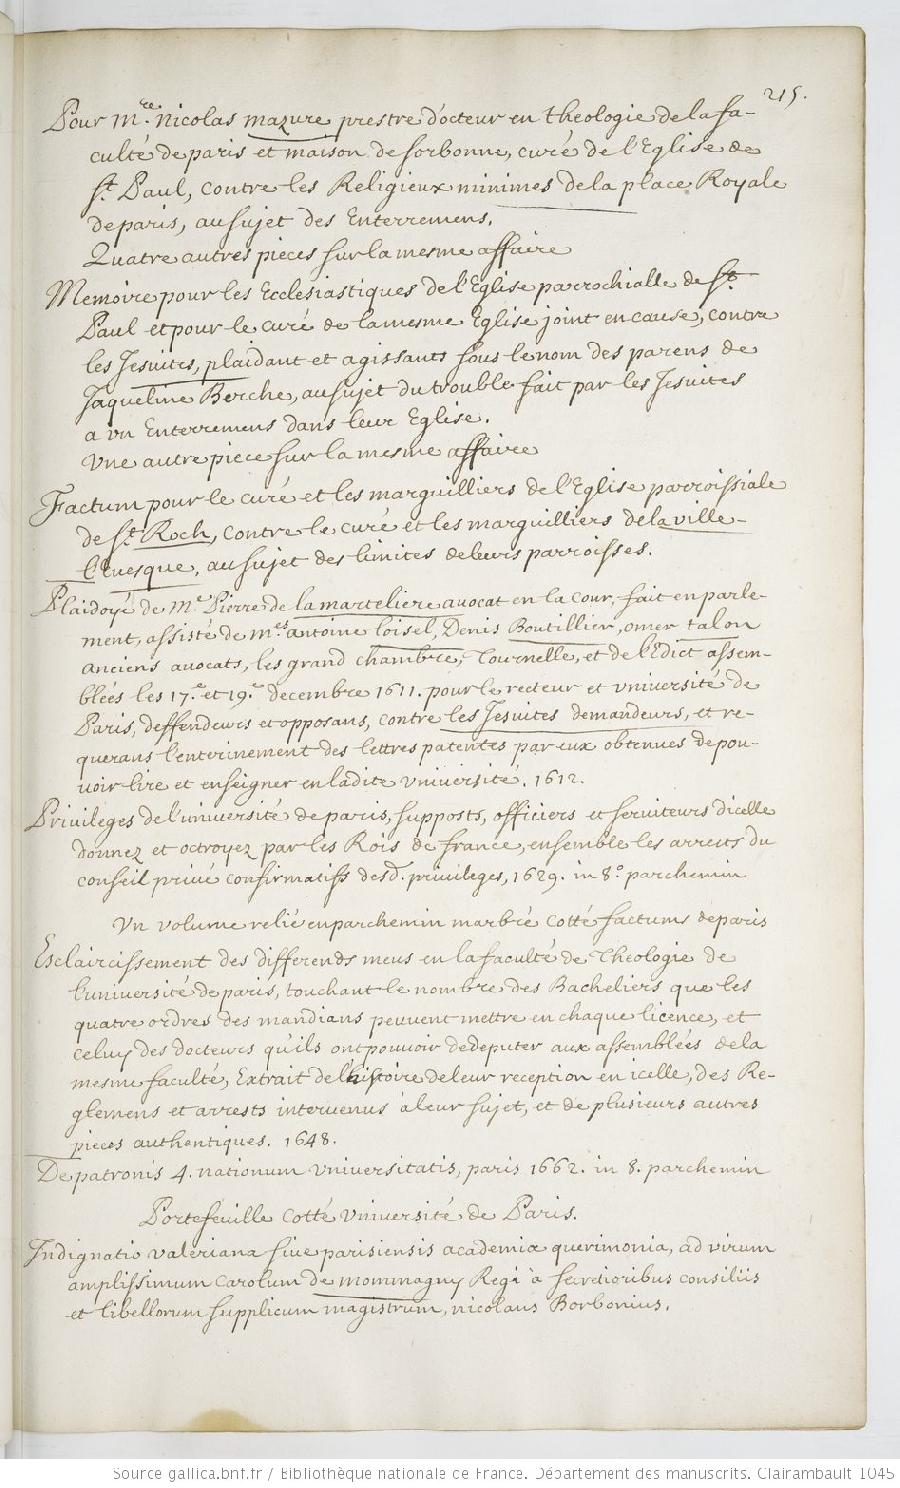 215.
Pour Mre. Nicolas mazure prestre d'octeur en theologie de la fa-
culté de paris et maison de sorbonne, curé de l'Eglise de
St. Paul, contre les Religieux minimes de la place Royale
de paris, au sujet des Enterremens.
Quatre autres pieces sur la mesme affaire
Memoire pour les Ecclesiastiques de l'Eglise parrochialle de St.
Paul et pour le curé de la mesme Eglise joint en cause, contre
les Jesuites, plaidant et agissants sous le nom des parens de
Jaqueline Berche, au sujet du trouble fait par les Jesuites
a un Enterremens dans leur Eglise.
Une autre piece sur la mesme affaire
Factum pour le curé et les marguilliers de l'Eglise parroissiale
de St. Roch, contre le curé et les marguilliers de la ville-
l'Euesque, au sujet des limites de leurs parroisses.
Plaidoyé de Me Pierre de la marteliere avocat en la cour, fait en parle-
ment, assisté de Mes antoine loisel, Denis Boutillier, omer talon
anciens avocats, les grand chambre, Tournelle, et de l'Edict assem-
blées les 17.e et 19.e decembre 1611. pour le recteur et université de
Paris, deffendeurs et opposans, contre les Jesuites demandeurs, et re-
querans l'enterinement des lettres patentes par eux obtenues de pou-
uoir lire et enseigner en ladite université. 1612.
Privileges de l'université de paris, supposts, officiers et seruiteurs dicelle
donnez et octroyez par les Rois de france, ensemble les arrests du
conseil privé confirmatifs desd. privileges, 1629. in 8.o parchemin
Un volume relié en parchemin marbré cotté factums de paris
Esclaircissement des differends meus en la faculté de Theologie de
l'université de paris, touchant le nombre des Bacheliers que les
quatre ordres des mandians peuvent mettre en chaque licence, et
celuy des docteurs qu'ils ont pouvoir de deputer aux assemblées de la
mesme faculté, Extrait de l'histoire de leur reception en icelle, des Re-
glemens et arrests intervenus à leur sujet, et de plusieurs autres
pieces authentiques. 1648.
De patronis 4. nationum universitatis, paris 1662. in 8. parchemin
Portefeuille cotté université de Paris.
Indignatio valeriana sive parisiensis academia querimonia, ad virum
amplissimum Carolum de mommagny Regi à sanctioribus consiliis
et libellorum supplicum magistrum, nicolaus Borbonius.
Source gallica.bnf.fr / Bibliothèque nationale de France. Département des manuscrits. Clairambault 1045